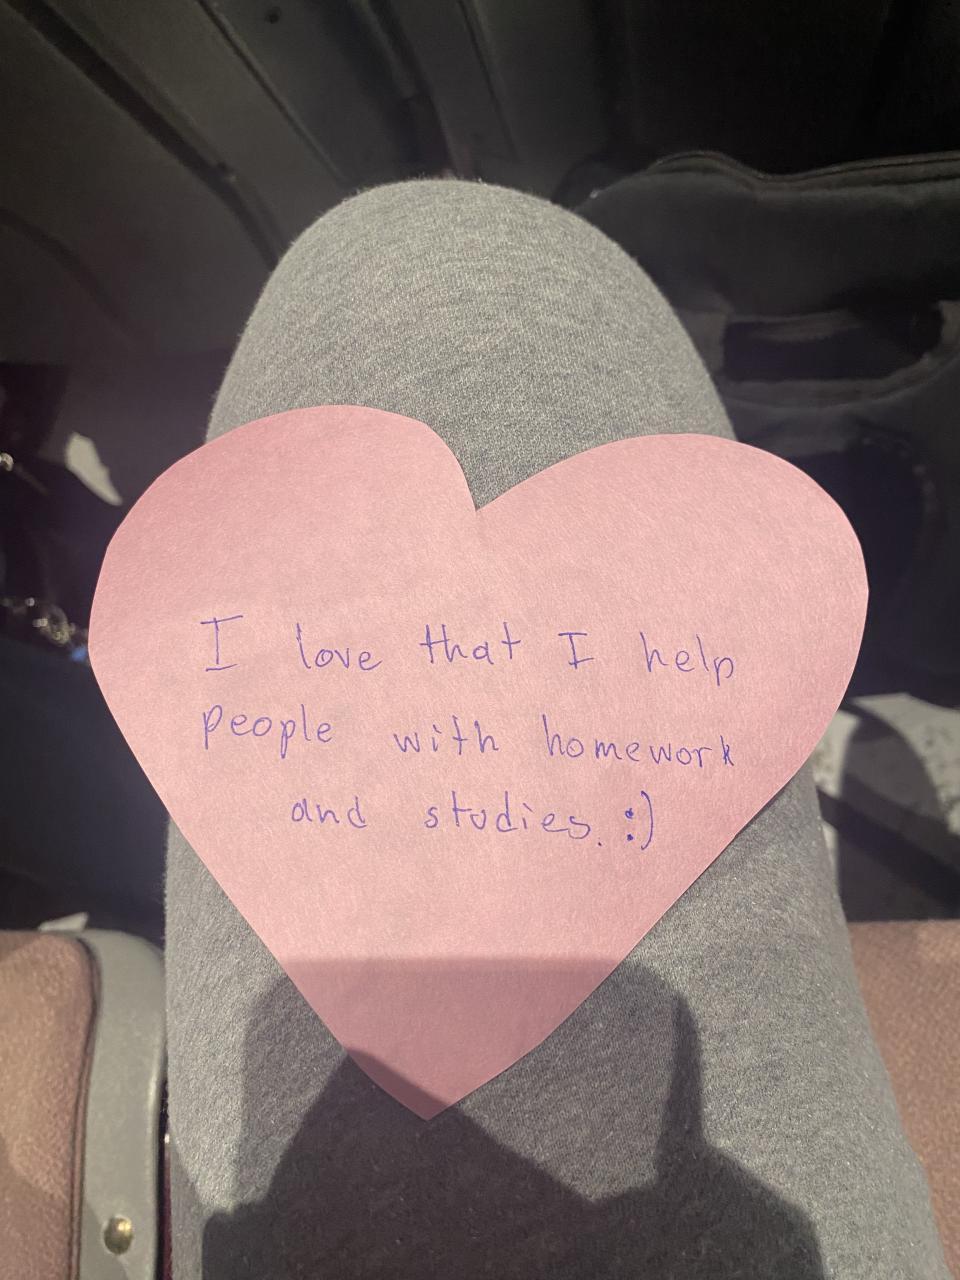 I love that I help
people with homework
and studies. :)